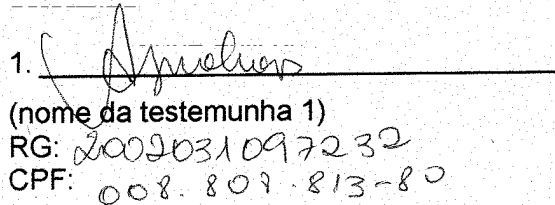 1.
(nome da testemunha 1)
RG: 2002031097232
CPF: 008.807.813-80